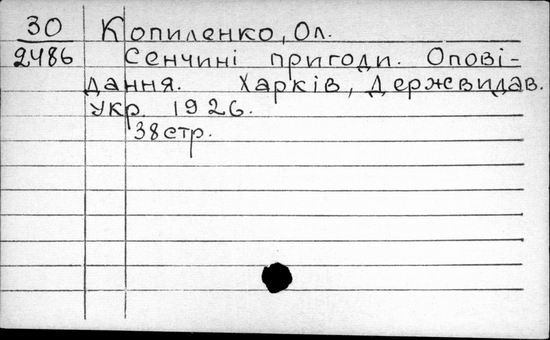 30 Копиленко, Ол.
2486 Сенчині пригоди. Опові-
дання. Харків, Держвидав.
Укр. 1926.
38 стр.